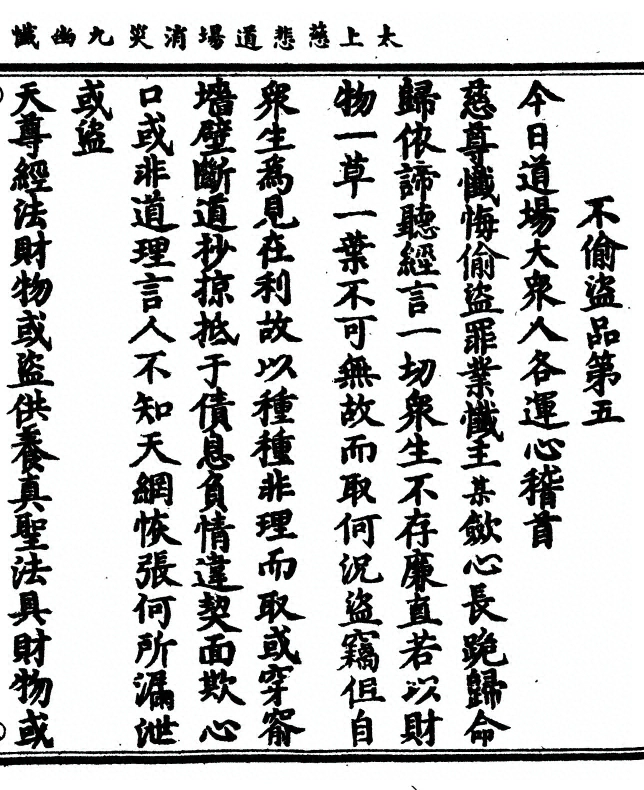 太上慈悲道場消災九幽懺
不偷盜品第五
今日道場大衆人各運心稽首
慈尊懺悔偷盜罪業懺主某歛心長跪歸命
歸依諦聽經言一切衆生不存廉直若以財
物一草一葉不可無故而取何況盜竊但自
衆生為見在利故以種種非理而取或穿窬
墻壁斷道抄掠抵于債息負情違契面欺心
口或非道理言人不知天網恢張何所漏泄
或盜
天尊經法財物或盜供養真聖法具財物或